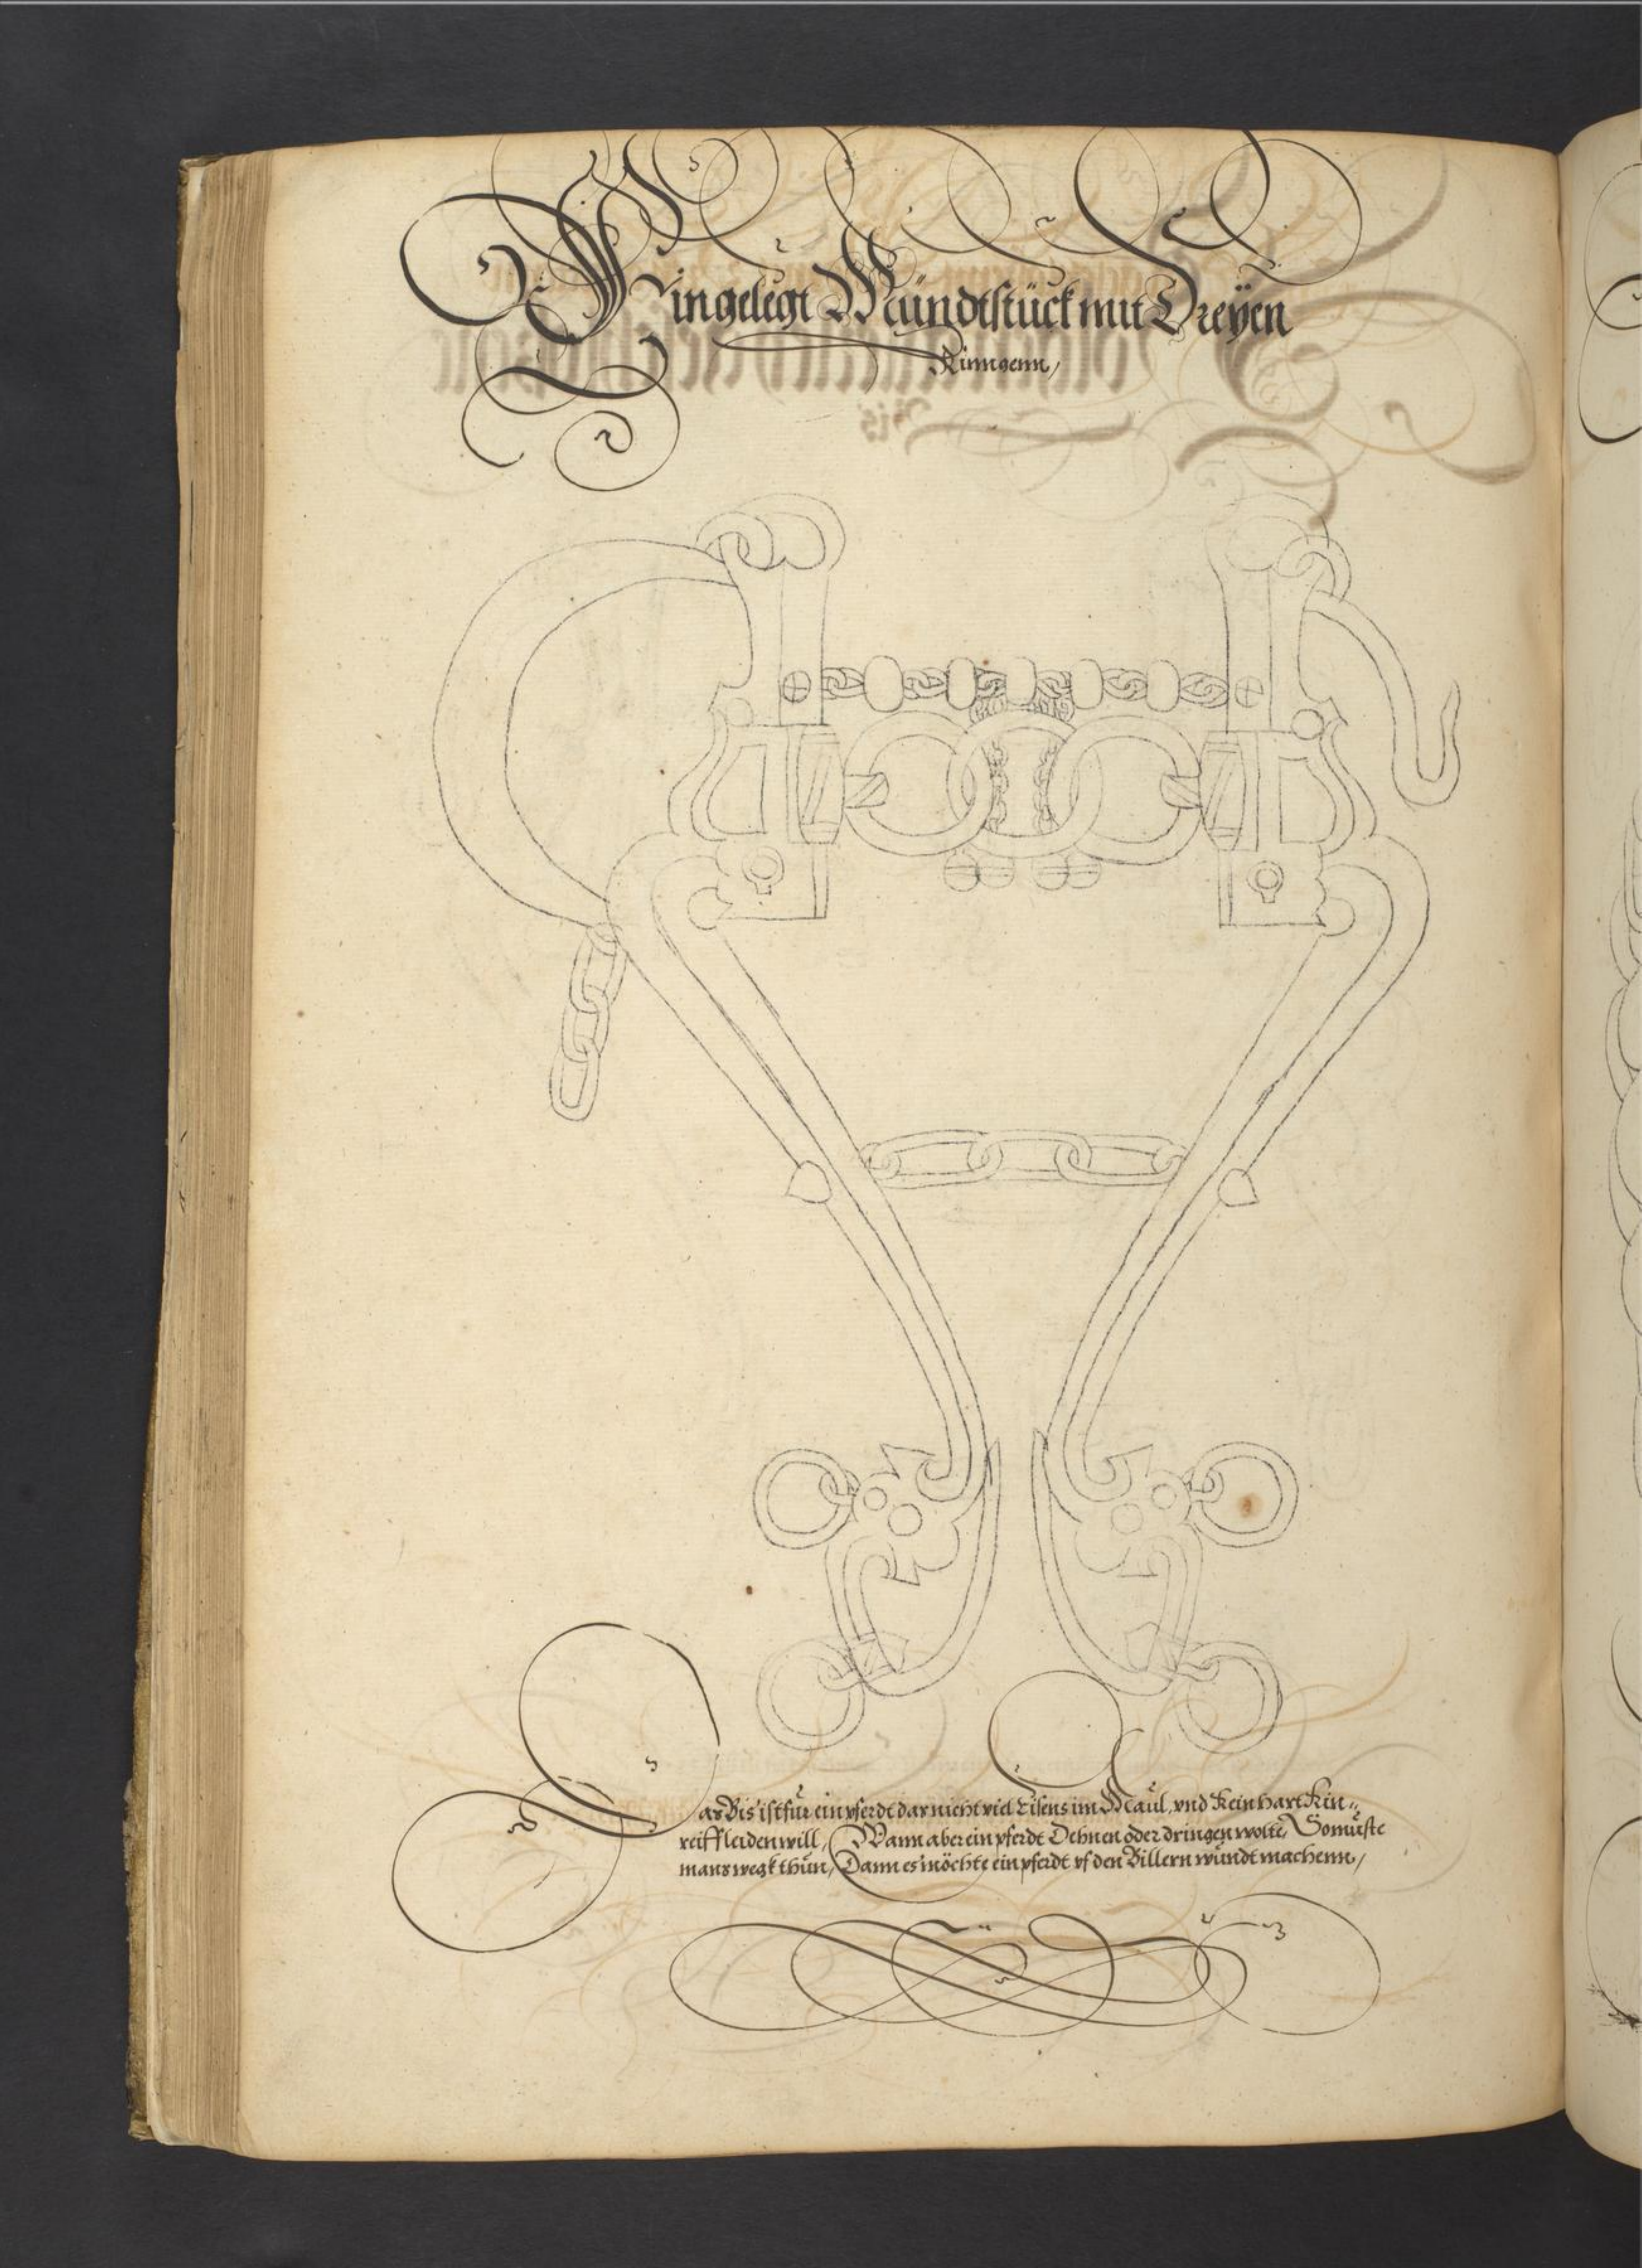 Eingelegt Mündtstück mit Dreÿen
Rinngenn,
Das Bis ist für ein pferdt dar nicht viel Eisens im Maul, vnd kein hart Kin-
reiff leiden will, Wann aber ein pferdt Dehnen oder dringen wolte, So müste
mans wegk thun, Dann es möchte ein pferdt vf den Billern wundt machenn,